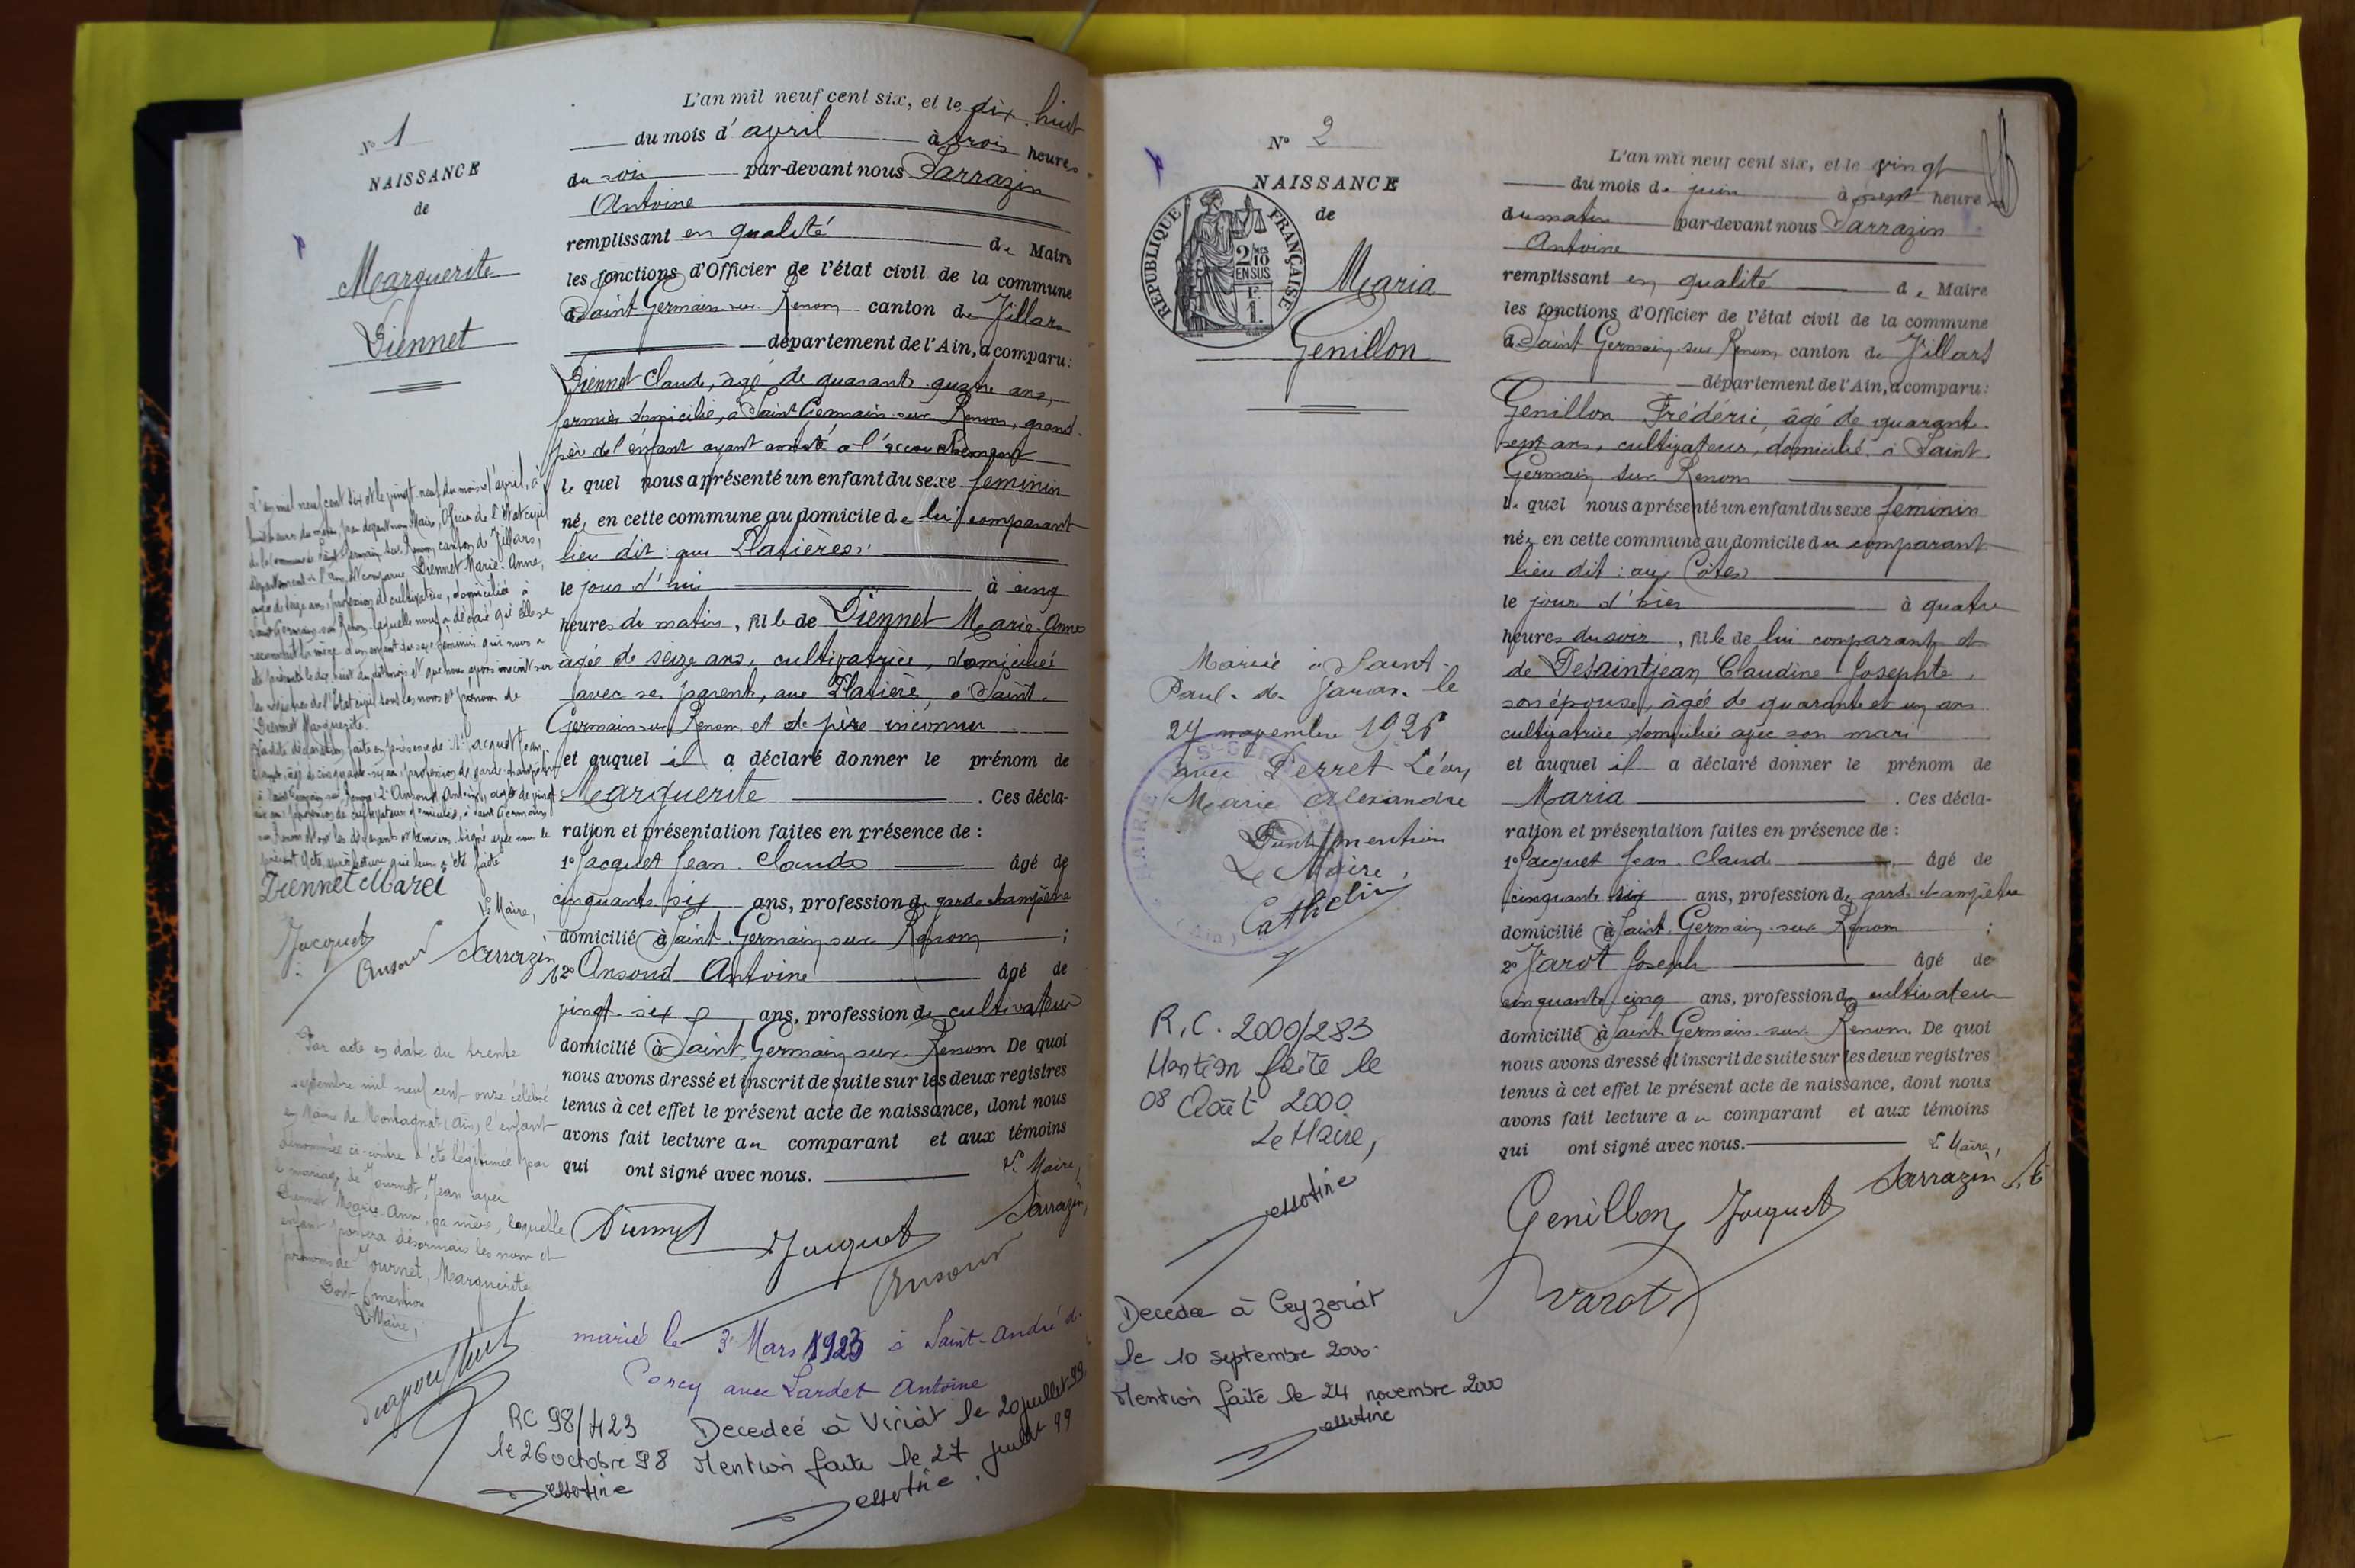 N° 1
NAISSANCE
de
Marguerite
Diennet
L'an mil neuf cent six, et le dix huit
du mois d'avril à trois heures
du soir par-devant nous Sarrazin
Antoine
remplissant en qualité de Maire
les fonctions d'Officier de l'état civil de la commune
de Saint Germain-sur-Renom canton de Villars
département de l'Ain, a comparu:
Diennet Claude, âgé de quarante quatre ans,
fermier domicilié, à Saint Germain sur Renom, grand-
père de l'enfant ayant assisté à l'accouchement
le quel nous a présenté un enfant du sexe féminin
née en cette commune au domicile de lui comparant
lieu dit: aux
le jour d'hui à cinq
heures du matin, fille de Diennet Marie-Anne
agée de seize ans, cultivatrice, domiciliée
avec ses parents, aux à Saint-
Germain sur Renom et de père inconnu
et auquel il a déclaré donner le prénom de
Marguerite . Ces décla-
ration et présentation faites en présence de :
1° Jacquet Jean-Claude âgé de
cinquante six ans, profession de garde champêtre
domicilié à Saint Germain sur Renom ;
2° Ansoud Antoine âgé de
vingt-six ans, profession de cultivateur
domicilié à Saint Germain sur Renom De quoi
nous avons dressé et inscrit de suite sur les deux registres
tenus à cet effet le présent acte de naissance, dont nous
avons fait lecture au comparant et aux témoins
qui ont signé avec nous. Le Maire,
Diennet Jacquet Sarrazin
Ansoud
L'an mil neuf cent six et le vingt-neuf du mois d'avril, à
huit heures du matin, par devant nous Maire, Officier de l'Etat civil
de la commune de Saint Germain sur Renom, canton de Villars,
département de l'Ain, est comparue Diennet Marie-Anne,
agée de seize ans, profession de cultivatrice, domiciliée à
Saint Germain sur Renom, laquelle nous a déclaré qu'elle se
reconnait la mère d'un enfant du sexe féminin qui nous a
été présenté le dix huit du dit mois et que nous avons inscrit sur
les registres de l'Etat civil sous les noms et prénoms de
Diennet Marguerite.
La dite déclaration faite en présence de 1° Jacquet Jean
Claude, âgé de cinquante-six ans, profession de garde-champêtre
à Saint Germain sur Renom; 2° Ansoud Antoine, âgé de vingt
six ans, profession de cultivateur domicilié, à Saint Germain
sur Renom et ont les déclarants et témoins signé avec nous le
présent Acte après lecture qui leur a été faite
Diennet Marei
Le Maire,
Jacquet Ansoud Sarrazin
Par acte en date du trente
septembre mil neuf cent onze célébré
en Mairie de Montagnat (Ain) l'enfant
dénommée ci-contre a été légitimée par
le mariage de Journet, Jean avec
Diennet Marie-Anne, sa mère, laquelle
enfant portera désormais les nom et
prénoms de Journet, Marguerite
Dont mention
Le Maire,
mariée le 3 Mars 1923 à Saint-André de
Corcy avec Lardet Antoine
RC 98/423
le 26 octobre 98
Decedée à Viriat le 20 juillet 99.
Mention faite le 27 juillet 99
N° 2
NAISSANCE
de
REPUBLIQUE FRANÇAISE
2/10 EN SUS
Maria
Genillon
Mariée à Saint-
Paul-de-Varax le
24 novembre 1926
avec Perret Léon
Marie Alexandre
Dont mention
Le Maire,
Cathelin
R.C. 2000/283
Mention faite le
08 Août 2000
Le Maire,
Decedée à Ceyzeriat
le 10 septembre 2000.
Mention faite le 24 novembre 2000
L'an mil neuf cent six, et le vingt
du mois de juin à sept heures
du matin par-devant nous Sarrazin
Antoine
remplissant en qualité de Maire
les fonctions d'Officier de l'état civil de la commune
de Saint Germain sur Renom canton de Villars
département de l'Ain, a comparu:
Genillon Frédéric, âgé de quarante-
sept ans, cultivateur, domicilié à Saint-
Germain sur Renom
le quel nous a présenté un enfant du sexe féminin
née en cette commune au domicile du comparant
lieu dit: aux Côtes
le jour d'hier à quatre
heures du soir, fille de lui comparant et
de Desaintjean Claudine Josephte,
son épouse, âgée de quarante et un ans
cultivatrice domiciliée avec son mari
et auquel il a déclaré donner le prénom de
Maria . Ces décla-
ration et présentation faites en présence de :
1° Jacquet Jean-Claude âgé de
cinquante six ans, profession de garde champêtre
domicilié à Saint Germain sur Renom ;
2° Varot Joseph âgé de
cinquante cinq ans, profession de cultivateur
domicilié à Saint Germain sur Renom. De quoi
nous avons dressé et inscrit de suite sur les deux registres
tenus à cet effet le présent acte de naissance, dont nous
avons fait lecture au comparant et aux témoins
qui ont signé avec nous. Le Maire,
Genillon Jacquet Sarrazin
Varot